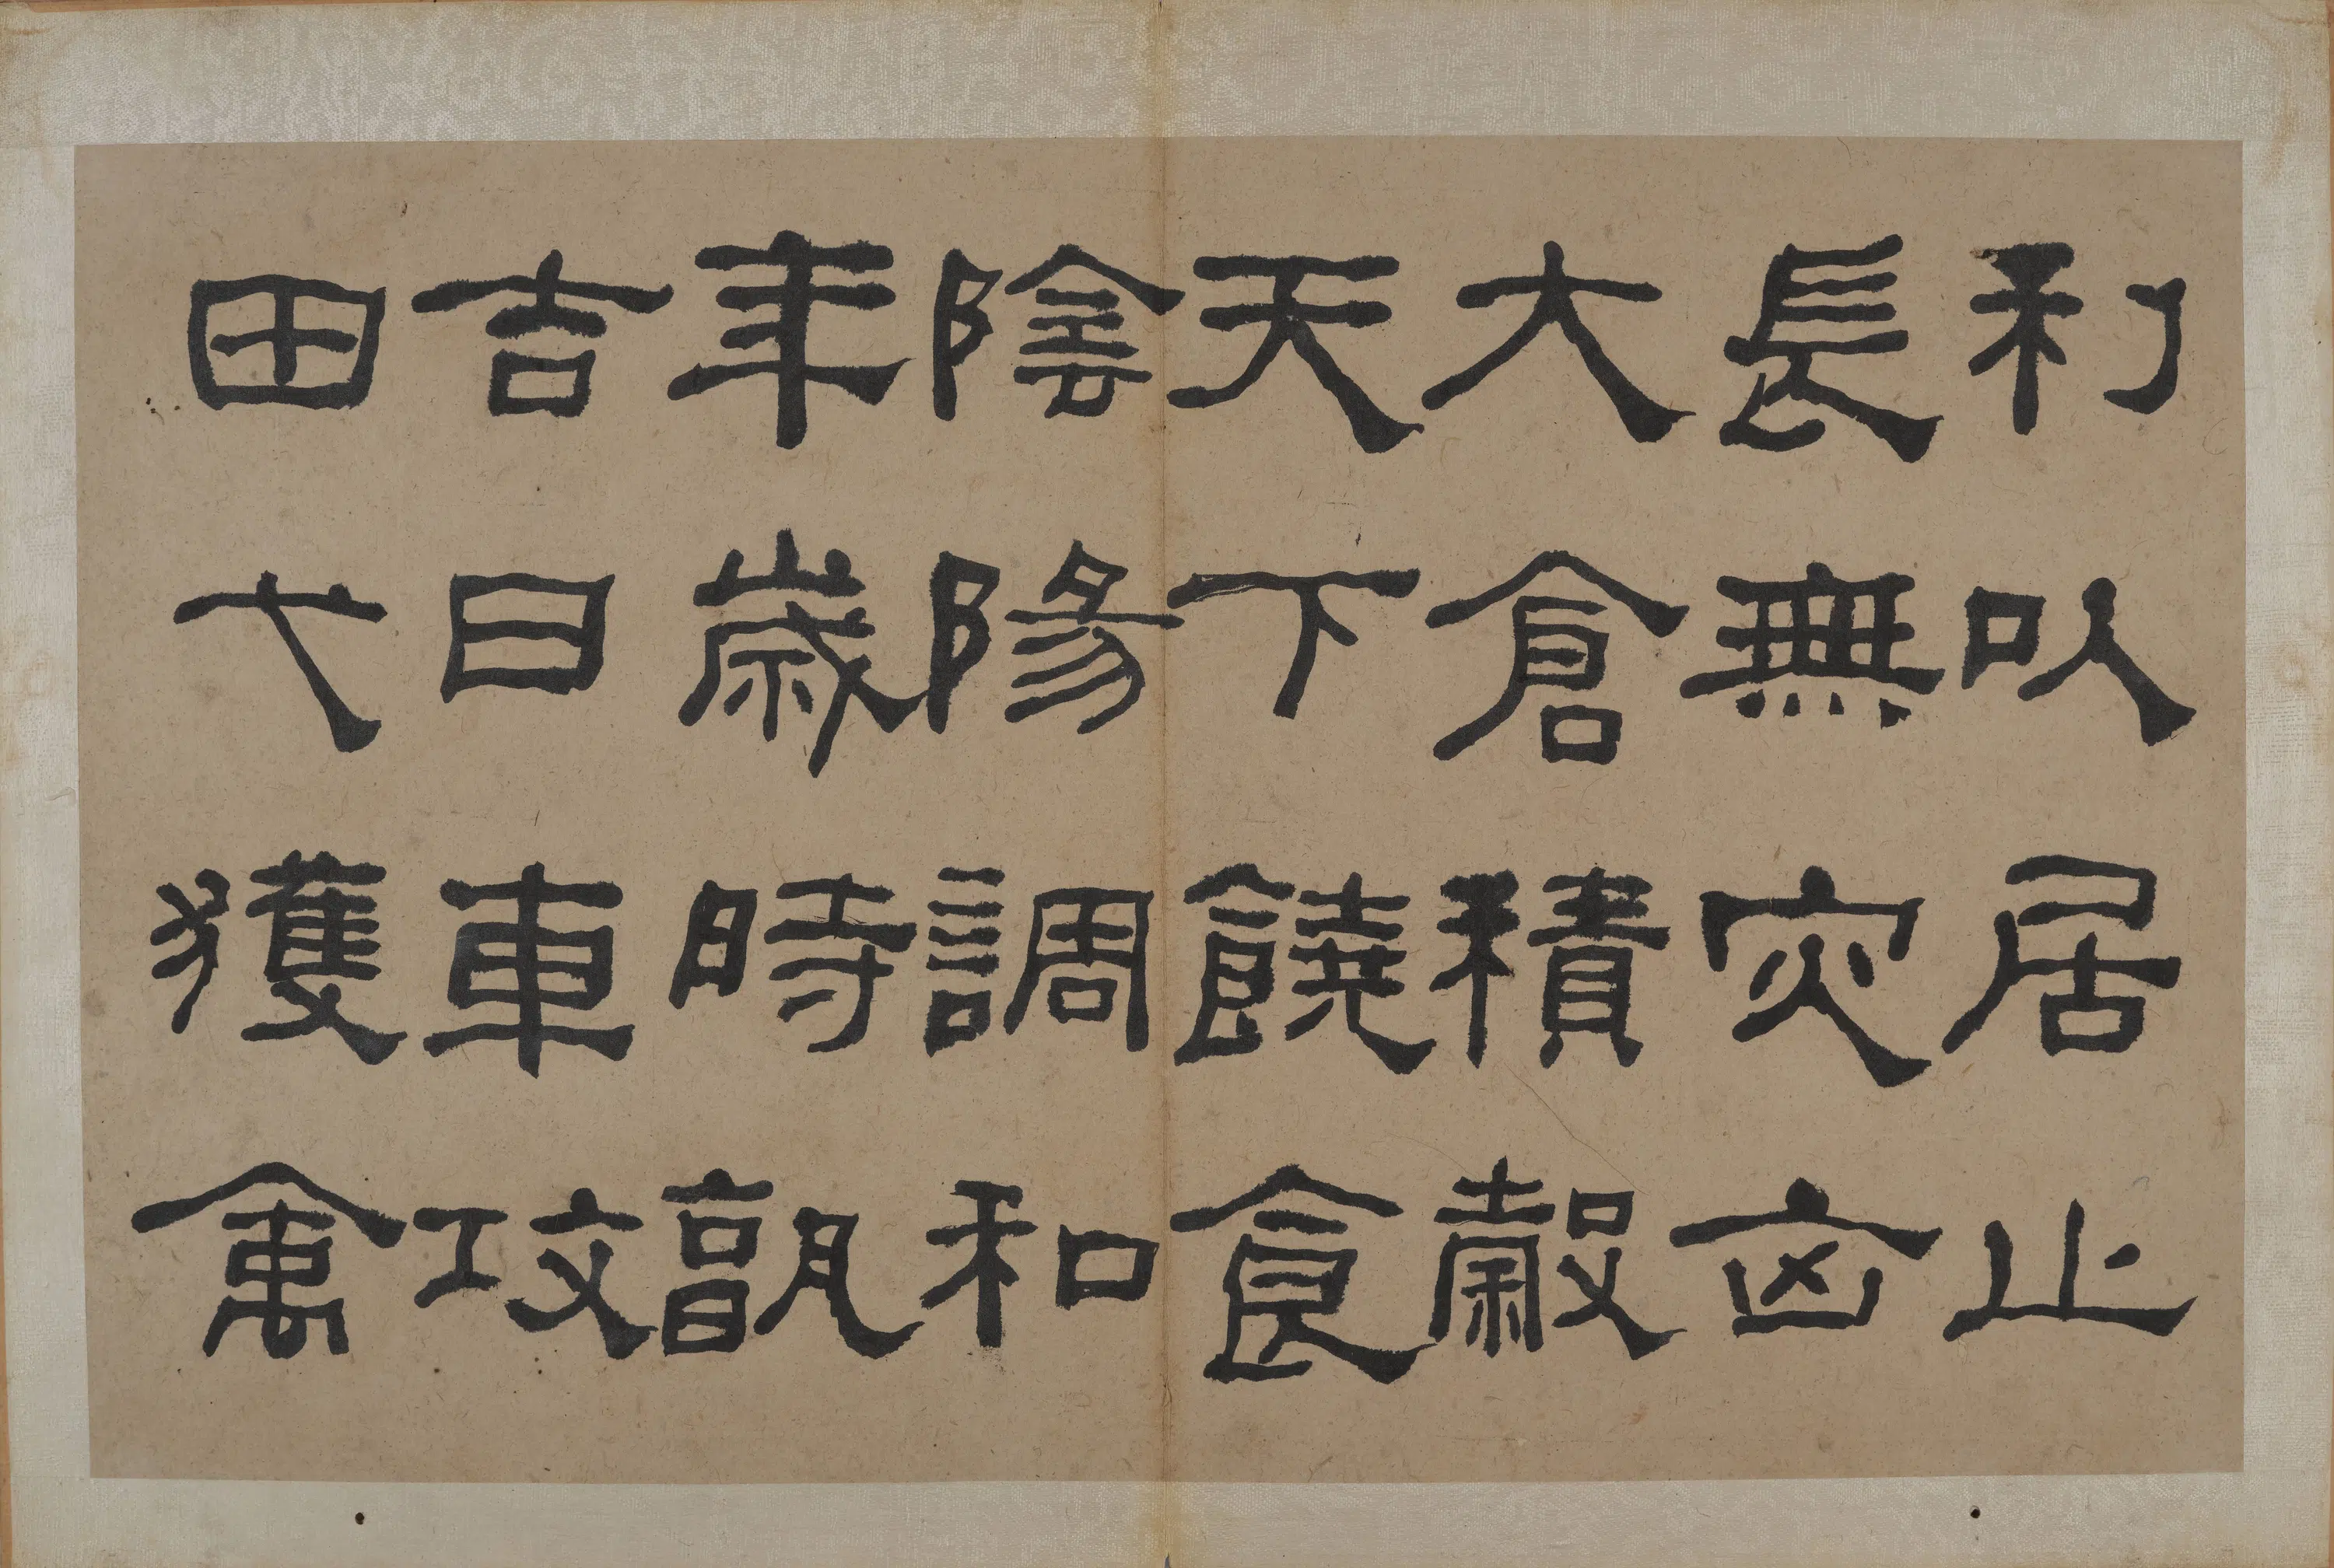 利以居止
長無灾㐫
大倉積穀
天下饒食
陰陽調和
年歲時孰
吉日車攻
田弋獲禽